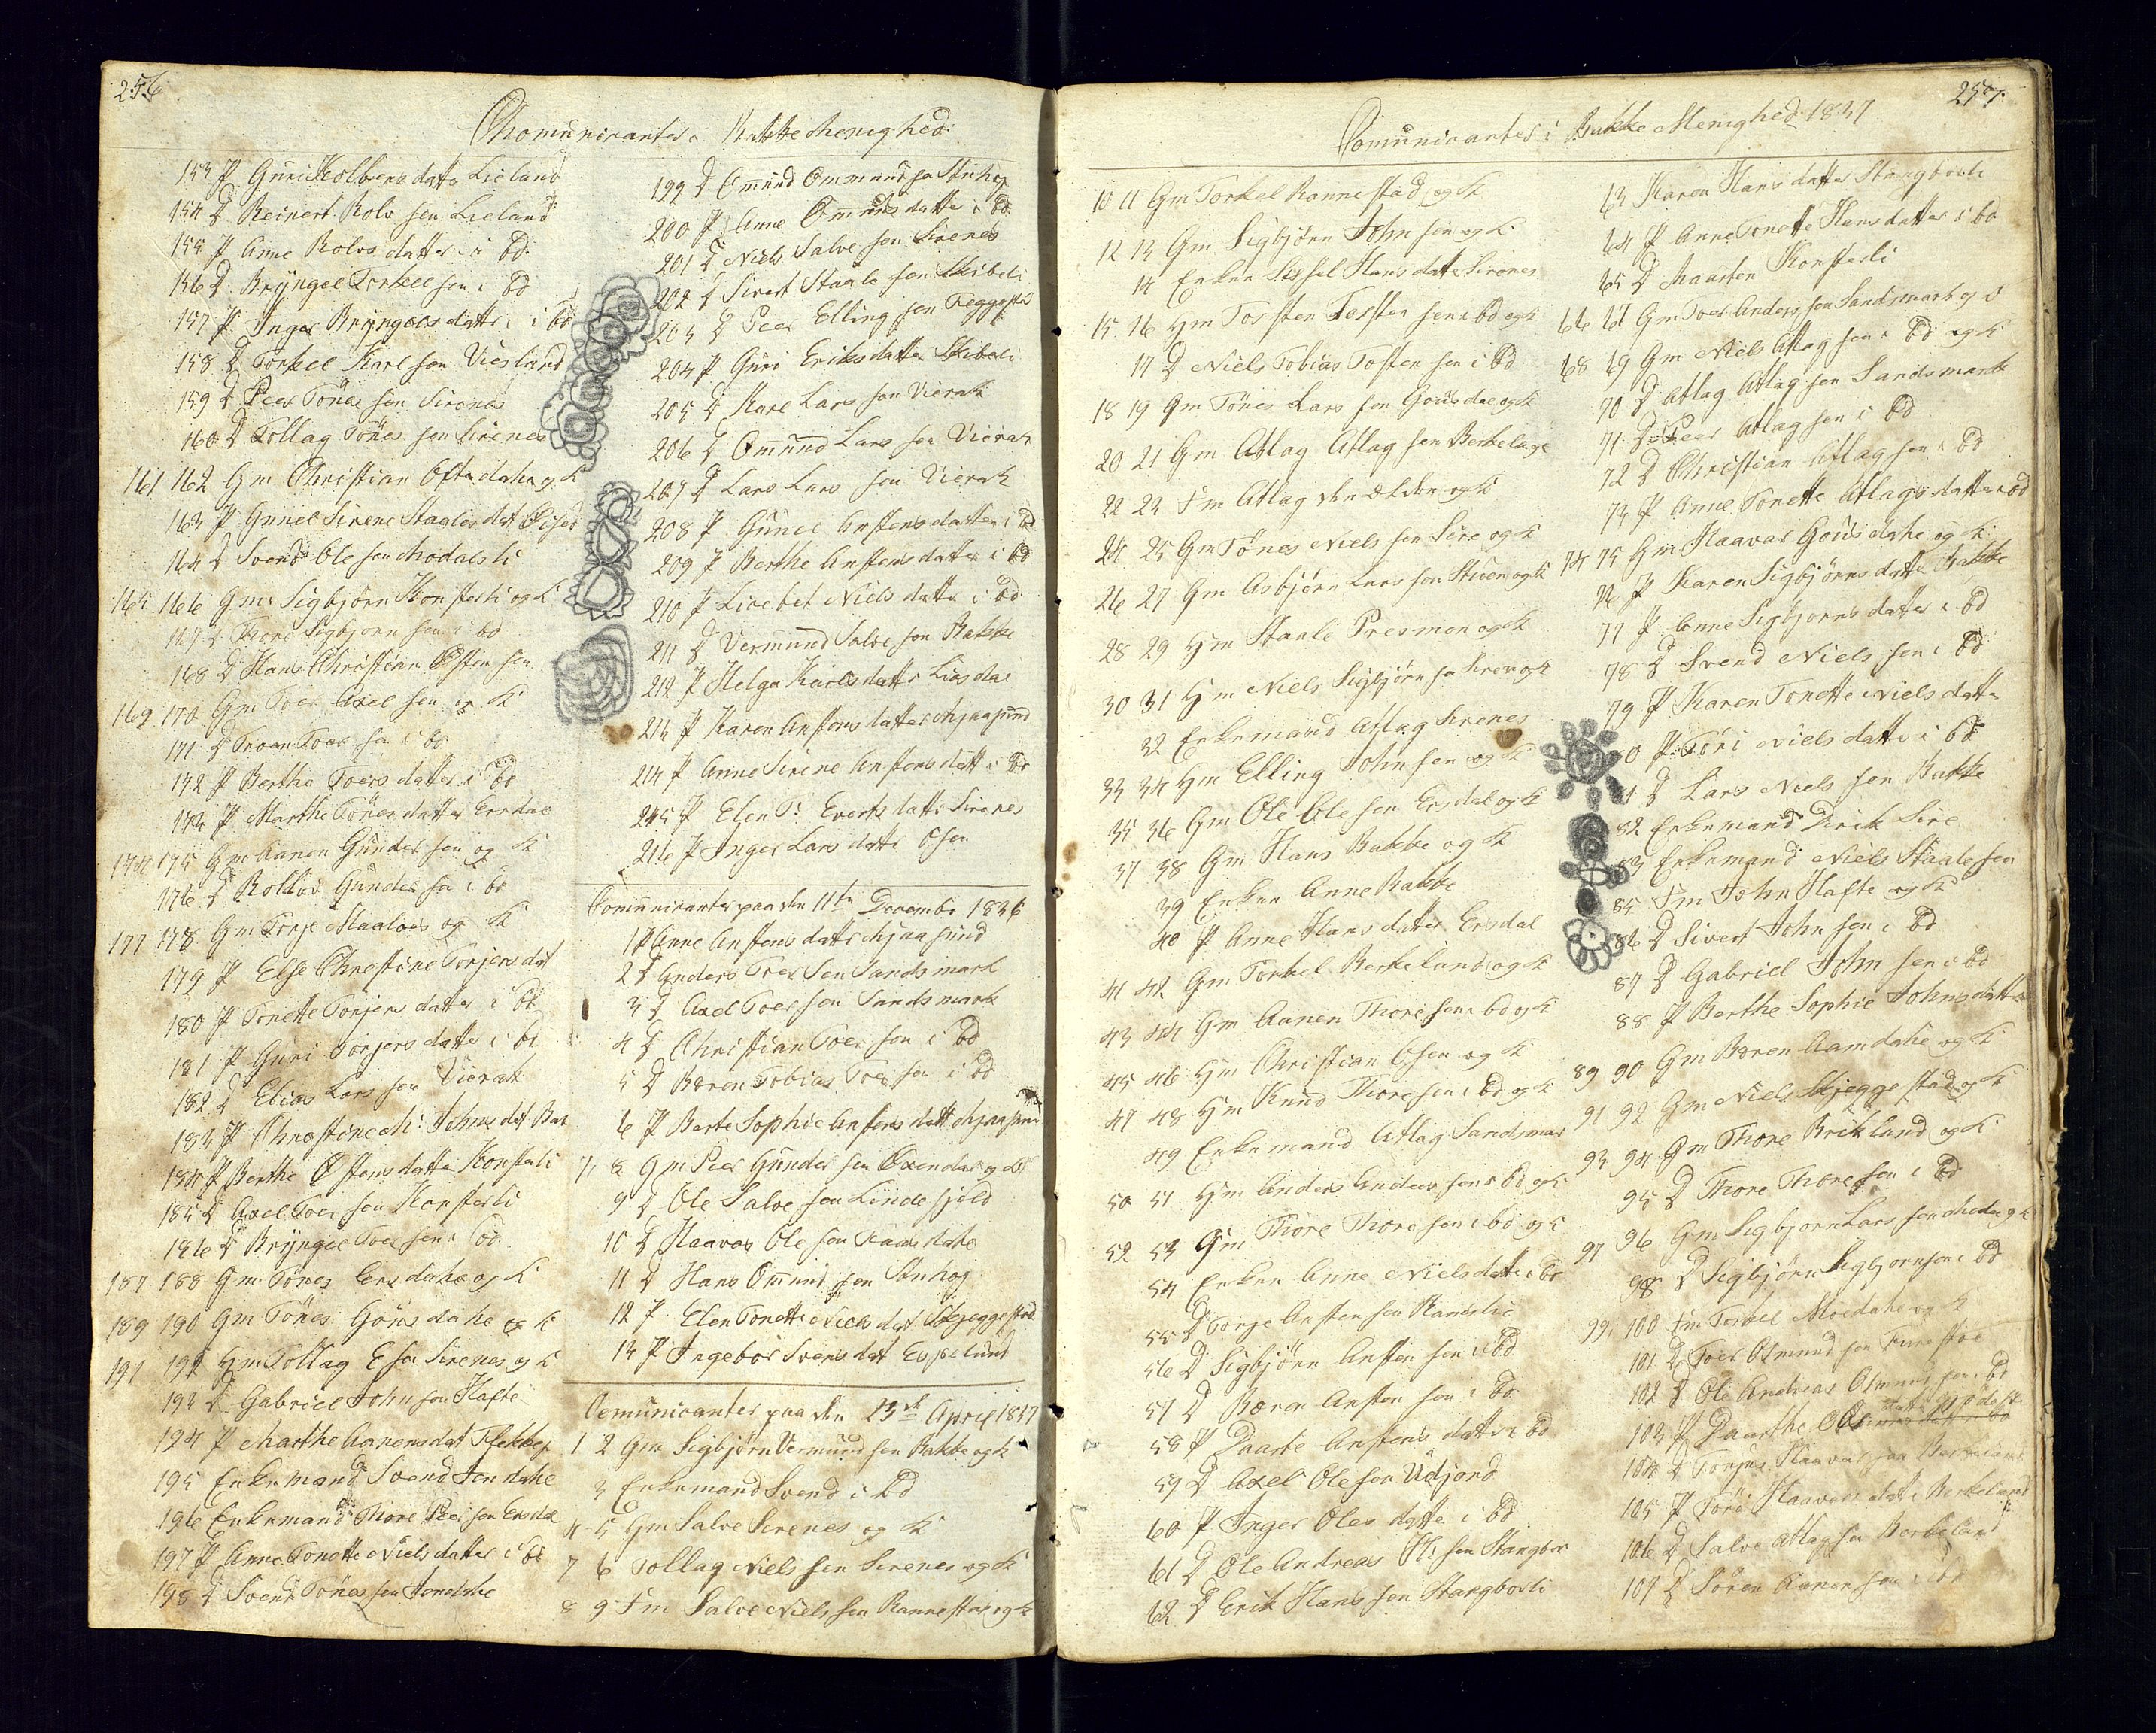 256
Chomunicanter Bakke Menighed:
153 P Guri Kolbens datter Lieland
154 D Reinert Rolv sen Lieland
155 P Anne Rolvs datter i bd
156 D Bryngel Torkel sen i bd
157 P Inger Bryngels datter i bd
158 D Torkel Karl sen Viesland
159 D Peer Tönes sen Sirenes
160 D Tollag Tönes sen Sirenes
161 162 Gm Christian Oftedahl og K
163 P Gunel Sirene Staales dat
164 D Svend Ole sen Modalsli
165 166 Gm Sigbjörn Konsterli og K
167 D Thore Sigbjorn sen i bd
168 D Hans Christian Osten sen
169 170 Gm Toer Axel sen og K
171 D Troen Toer sen i bd
172 P Bertha Toers datter i bd
173 P Marthe Tönes datter Ersdal
174 175 Gm Aanen Gunder sen og K
176 D Rollov Gunder sen i bd
177 178 Gm Torje og K
179 P Else Christine Torjers dat
180 P Tonette Torjers datter i bd
181 P Guri Torjers datter i bd
182 D Elias Lars sen Vierak
183 P Johns dat
184 P Berthe Ostens datter Konsterli
185 D Axel Toer sen Konsterli
186 D Bryngel Toer sen i bd
187 188 Gm Tönes Ersdahl og K
189 190 Gm Tönes Gousdahl og K
191 192 Hm Tollag E sen Sirenes og K
193 D Gabriel John sen Hafte
194 P Marthe Aanens dat
195 Enkemand Svend
196 Enkemand Thore Peer sen Ersdal
197 P Anne Tonette Niels datter i bd
198 D Svend Tönes sen
199 D Omund Ommund sen Stuhoj
200 P Anne Omunds datter i bd
201 D Niels Salve sen Sirenes
202 D Sivert Staale sen Skibeli
203 D Peer Elling sen
204 P Guri Eriks datter Skibeli
205 D Karl Lars sen Vierak
206 D Omund Lars sen Vierak
207 D Lars Lars sen Vierak
208 P Gunel Anstens datter i bd
209 P Berthe Anstens datter i bd
210 P Lisebet Niels datter i bd
211 D Vermund Salve sen Bakke
212 P Helga Karls datter Liesdal
213 P Karen Anstens datter Mjaasund
214 P Anne Sirene Anstens datt i bd
215 P Elen T: Everts datter Sirenes
216 P Inger Lars datter Osen
Comunicanter paa den 11te Decembr 1836
1 P Anne Anstens datter Mjaasund
2 D Anders Toer sen Sandsmark
3 D Axel Toer sen Sandsmark
4 D Christian Toer sen i bd
5 D Bæren Tobias Toer sen i bd
6 P Berte Sophie Anstens datt Mjaasund
7 8 Gm Peer Gunder sen Oxendal og K
9 D Ole Salve sen Lindefjeld
10 D Haavar Ole sen
11 D Hans Omund sen Stuhoj
12 P Elen Tonette Niels dat Skjeggestad
13 P Ingebor Svens dat Espelund
Comunicanter paa den 23de April 1837
1 2 Gm Sigbjörn Vermund sen Bakke og K
3 Enkemand Svend i bd
4 5 Gm Salve Sirenes og K
7 6 Tollag Niels sen Sirenes og K
8 9 Fm Salve Niels sen Rannestad og K
257
Comunicanter i Bakke Menighed 1837
10 11 Gm Torkel Rannestad og K
12 13 Gm Sigbjörn John sen og K
14 Enken Sissel Hans datter Sirenes
15 16 Hm Torsten Torsten sen i bd og K
17 D Niels Tobias Tosten sen i bd
18 19 Gm Tönes Lars sen Gousdal og K
20 21 Gm Atlag Atlag sen
22 23 Fm Atlag den ælder og K
24 25 Gm Tönes Niels sen Sire og K
26 27 Gm Asbjörn Lars sen Stuen og K
28 29 Hm Staale Presmon og K
30 31 Hm Niels Sigbjörn sen og K
32 Enkemand Atlag Sirenes
33 34 Hm Elling John sen og K
35 36 Gm Ole Ole sen Ersdal og K
37 38 Gm Hans Bakke og K
39 Enken Anne Bakke
40 P Anne Hans datter Ersdal
41 42 Gm Torkel Berkelund og K
43 44 Gm Aanen Thore sen i bd og K
45 46 Hm Christian Osen og K
47 48 Hm Knud Thore sen i bd og K
49 Enkemand Atlag Sandsmar
50 51 Hm Anders Anders sen i bd og K
52 53 Gm Thore Thore sen i bd og K
54 Enken Anne Niels datter i bd
55 D Torje Ansten sen
56 D Sigbjörn Ansten sen i bd
57 D Bæren Ansten sen i bd
58 P Daarte Anstens datter i bd
59 D Axel Ole sen Udjord
60 P Inger Oles datter i bd
61 D Ole Andreas H: sen Stangbor
62 D Erik Hans sen Stangborli
63 Karen Hans datter Stangborli
64 P Anne Tonette Hans datter i bd
65 D Maarten Konsterli
66 67 Gm Toer Anders sen Sandsmark og K
68 69 Gm Niels Atlag sen i bd og K
70 D Atlag Atlag sen Sandsmark
71 D Peer Atlag sen i bd
72 D Christian Atlag sen i bd
73 P Anne Tonette Atlags datter i bd
74 75 Gm Haavar Gousdahl og K
76 P Karen Sigbjörns datter Bakke
77 P Anne Sigbjorns datter i bd
78 D Svend Niels sen i bd
79 P Karen Tonette Niels datter
80 P Töri Niels datter i bd
81 D Lars Niels sen Bakke
82 Enkemand Dirik Sire
83 Enkemand Niels Staale sen
85 Fm John Hafte og K
86 D Sivert John sen i bd
87 D Gabriel John sen i bd
88 P Berthe Sophie Johns datter
89 90 Gm Bæren Aamdahl og K
91 92 Gm Niels Skjeggestad og K
93 94 Gm Thore Birkland og K
95 D Thore Thore sen i bd
97 96 Gm Sigbjorn Lars sen og K
98 D Sigbjörn Sigbjorn sen i bd
99 100 Fm Torkel Moidahl og K
101 D Toer Osmund sen
102 D Ole Andreas Osmund sen i bd
103 P Daarthe
104 D Torjus Haavar sen
105 P Töri Haavars datter Berkeland
106 D Salve Atlag sen Berkeland
107 D Sören Aanen sen i bd